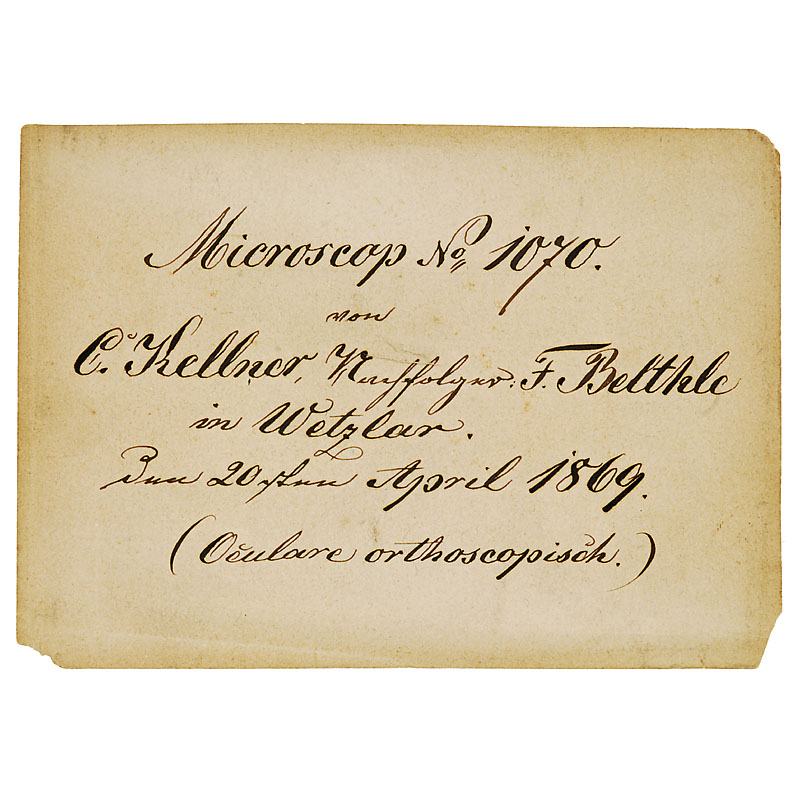 Microscop No 1070.
von
C. Kellner, Nachfolger: F. Belthle
in Wetzlar.
Den 20sten April 1869.
(Oculare orthoscopisch.)